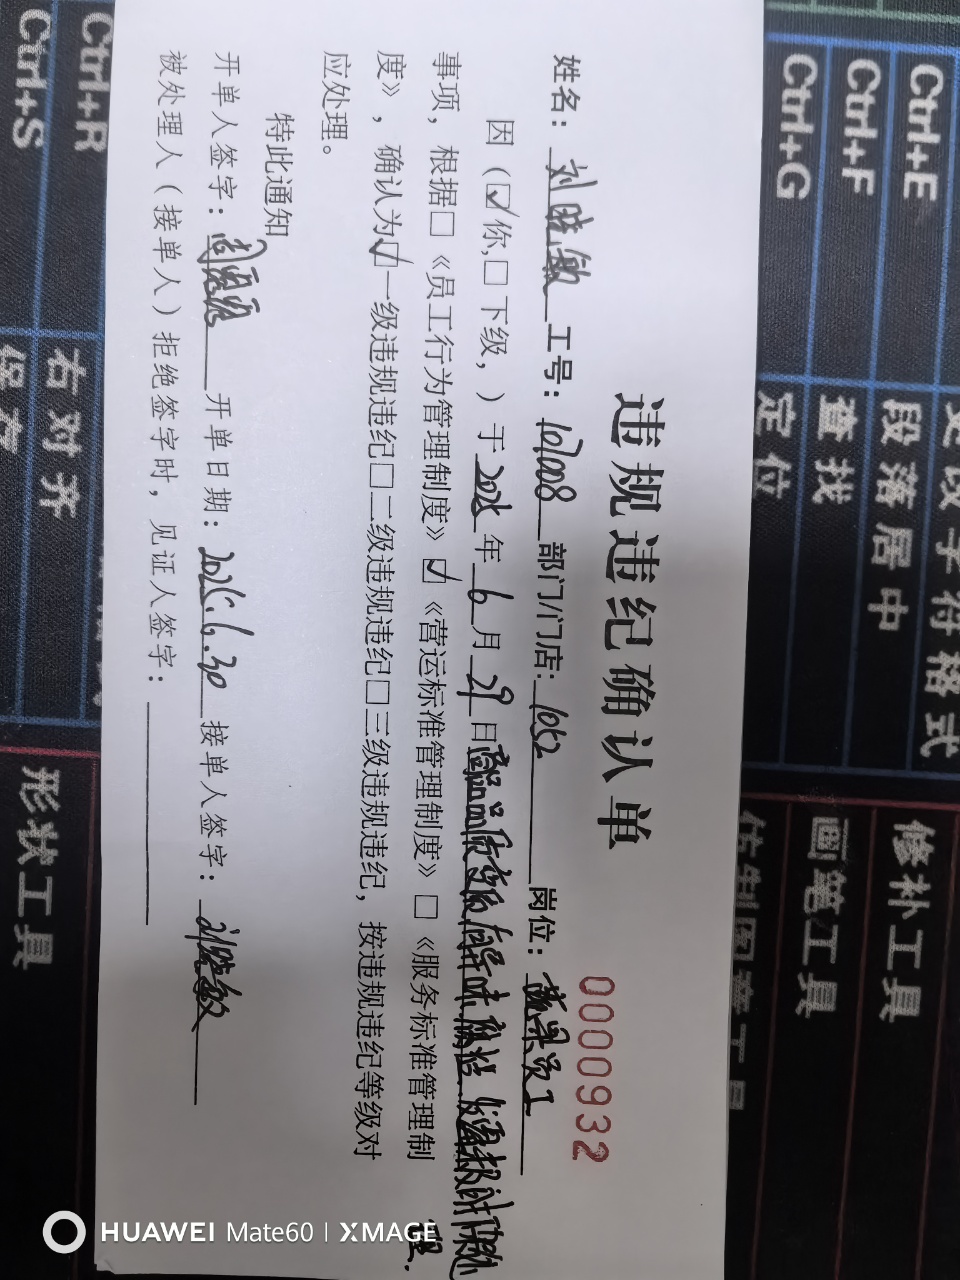 违规违纪确认单
0000932
姓名：刘晓敏 工号：107008 部门/门店：1052 岗位：蔬果员工
因（☑你,□下级，）于2025年6月29日商品质变
事项，根据□《员工行为管理制度》☑《营运标准管理制度》□《服务标准管理制
度》，确认为☑一级违规违纪□二级违规违纪□三级违规违纪，按违规违纪等级对
应处理。
特此通知
开单人签字： 开单日期：2025.6.30 接单人签字：刘晓敏
被处理人（接单人）拒绝签字时，见证人签字：
Ctrl+E
段落居中
Ctrl+F
查找
Ctrl+G
定位
Ctrl+R
右对齐
Ctrl+S
保存
修补工具
画笔工具
形状工具
HUAWEI Mate60 | XMAGE